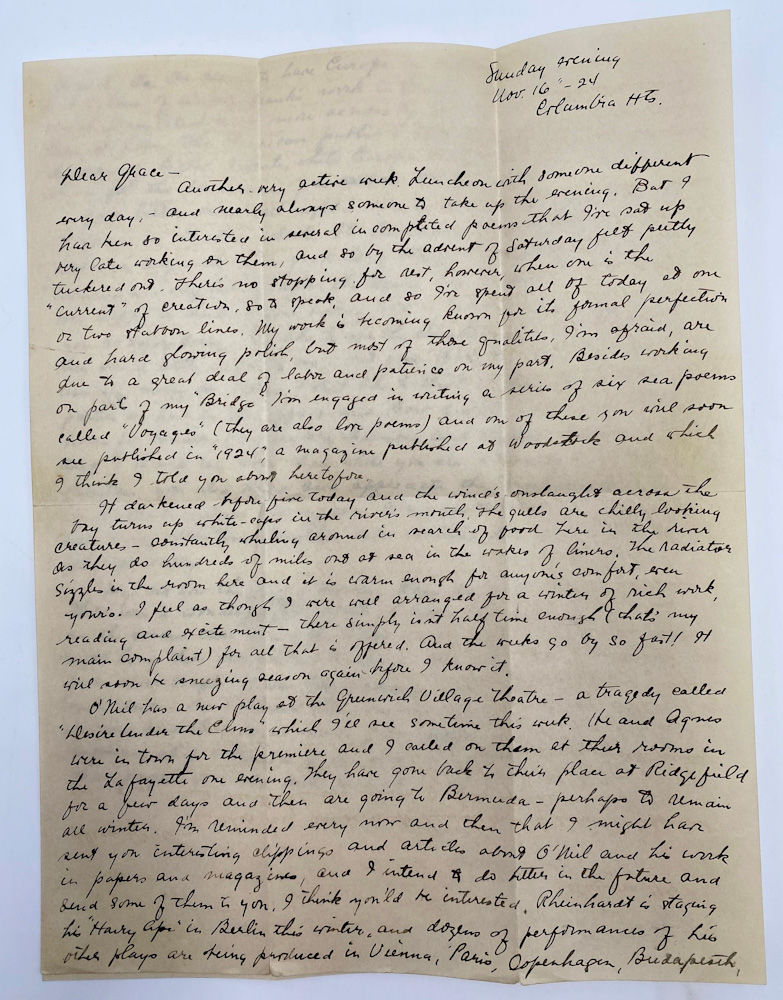 Sunday evening
Nov. 16" - 24
Columbia Hts.
Dear Grace -
Another very active week. Luncheon with someone different
every day, - and nearly always someone to take up the evening. But I
have been so interested in several incompleted poems that I've sat up
very late working on them, and so by the advent of Saturday felt pretty
tuckered out. There's no stopping for rest, however, when one is the
"current" of creation, so to speak, and so I've spent all of today at one
or two stubborn lines. My work is becoming known for its formal perfection
and hard glowing polish, but most of those qualities, I'm afraid, are
due to a great deal of labor and patience on my part. Besides working
on parts of my "Bridge" I'm engaged in writing a series of six sea poems
called "Voyages" (they are also love poems) and one of these you will soon
see published in "1924", a magazine published at Woodstock and which
I think I told you about heretofore.
It darkened before five today and the wind's onslaught across the
bay turns up white-caps in the river's mouth. The gulls are chilly looking
creatures - constantly wheeling around in search of food here in the river
as they do hundreds of miles out at sea in the wakes of liners. The radiator
sizzles in the room here and it is warm enough for anyone's comfort, even
your's. I feel as though I were well arranged for a winter of rich work,
reading and excitement - there simply isn't half time enough (that's my
main complaint) for all that is offered. And the weeks go by so fast! It
will soon be sneezing season again before I know it.
O'Neil has a new play at the Greenwich Village Theatre - a tragedy called
"Desire Under the Elms" which I'll see sometime this week. He and Agnes
were in town for the premiere and I called on them at their rooms in
the Lafayette one evening. They have gone back to their place at Ridgefield
for a few days and then are going to Bermuda - perhaps to remain
all winter. I'm reminded every now and then that I might have
sent you interesting clippings and articles about O'Neil and his work
in papers and magazines, and I intend to do better in the future and
send some of them to you. I think you'ld be interested. Rheinhardt is staging
his "Hairy Ape" in Berlin this winter, and dozens of performances of his
other plays are being produced in Vienna, Paris, Copenhagen, Budapesth,